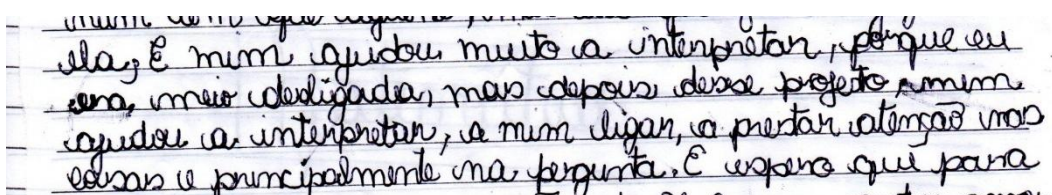 ela, E mim ajudou muito a interpretar, porque eu
era, meio desligada, mas depois desse projeto, mim
ajudou a interpretar, a mim ligar, a prestar atenção nas
coisas e principalmente na pergunta. E espero que para